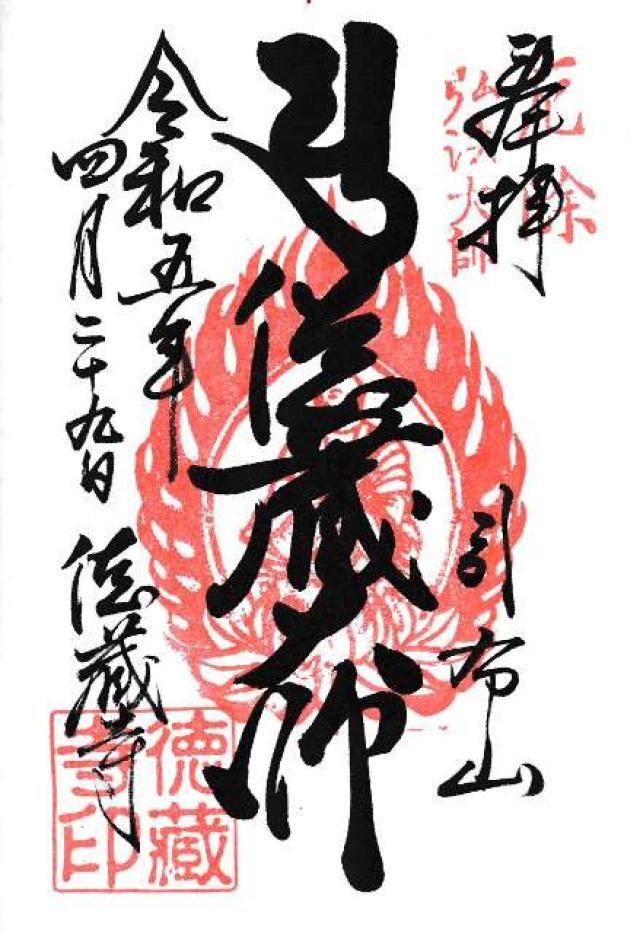 奉拝
厄除
弘法大師
引布山
徳蔵大師
令和五年
四月二十九日
徳蔵寺
徳蔵
寺印